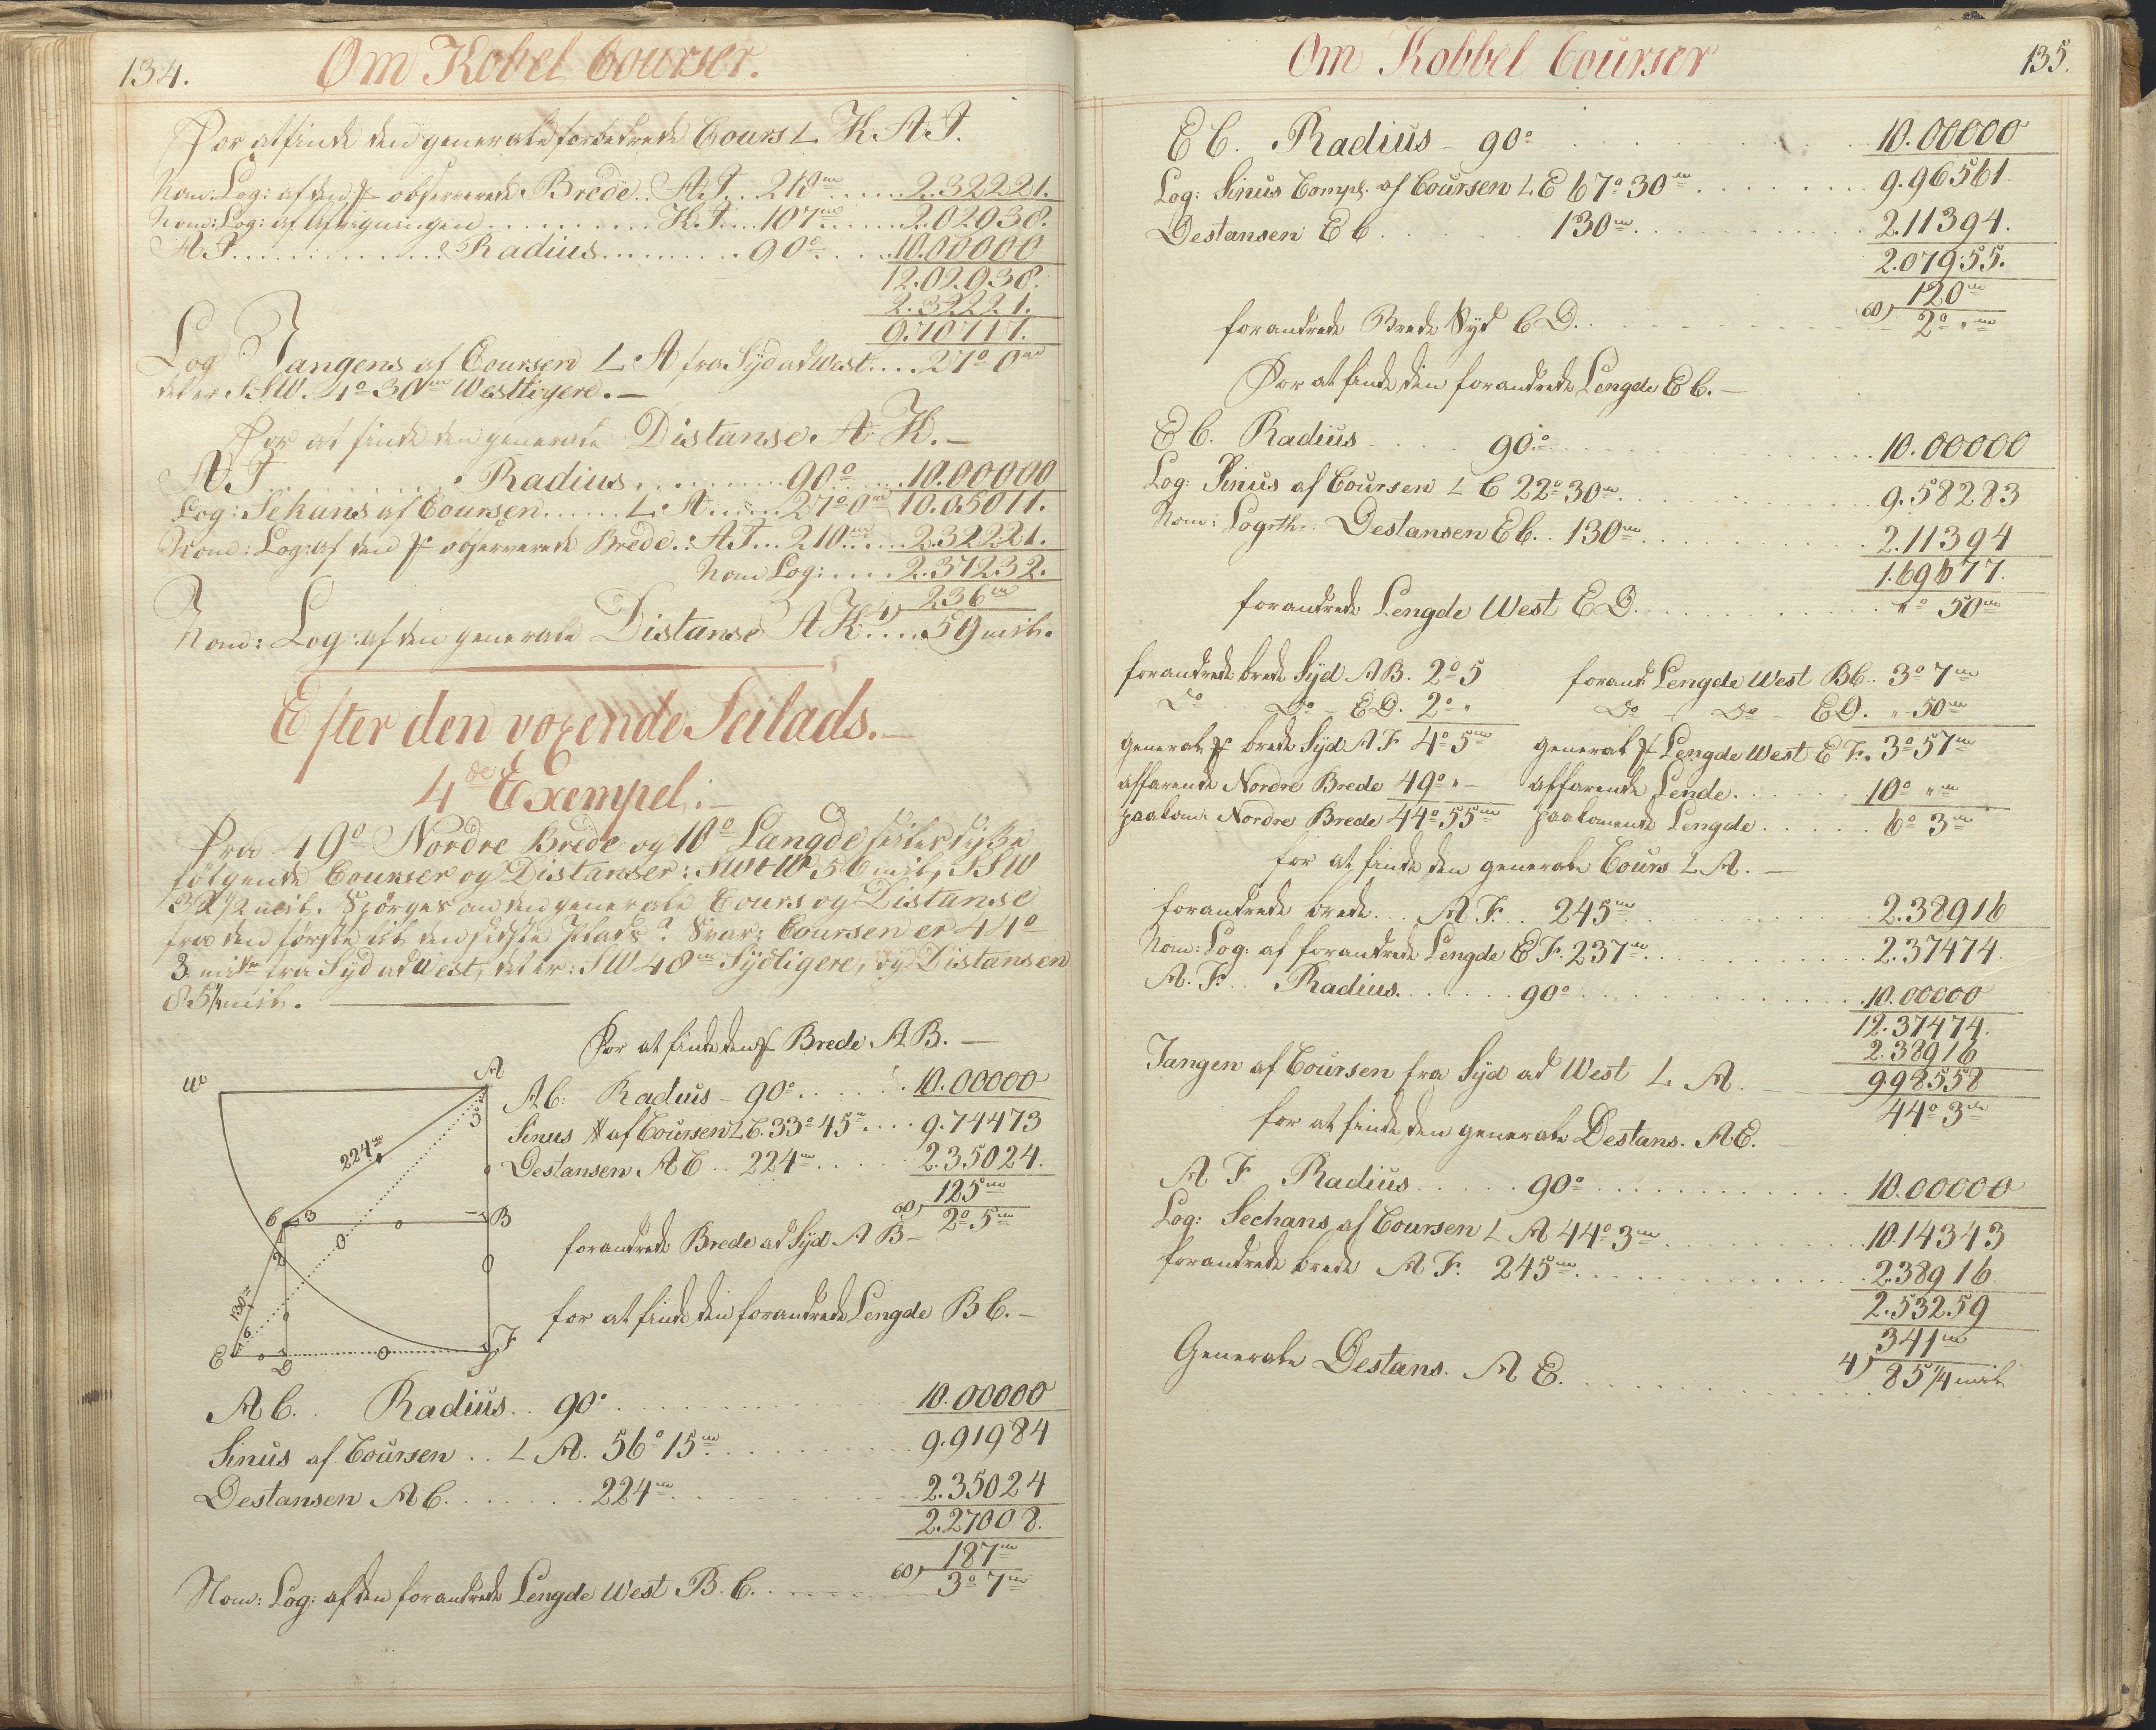 134.
Om Kobel Courser.
For at finde den generale forbedrede Cours L K A I.
Nom: Log: af den f observerede Brede.. A I... 210m ...... 2.32221.
Nom: Log: af Afvigningen .......... K.I.... 107m ...... 2.02938.
A I. ............ Radius......... 90° ..... 10.00000
12.02938.
2.32221.
9.70717.
Log Tangens af Coursen L A fra Syd ad West.... 27° 0m
det er SSW. 4° 30m Westligere. —
For at finde den generale Distanse. A K. —
A I. ........... Radius ......... 90° ...... 10.00000
Log: Sekans af Coursen...... L A...... 27° 0m 10.05011.
Nom: Log: af den f observerede Brede.: A I... 210m...... 2.32221.
Nom Log:.... 2.37232.
236m
Nom: Log: af den generale Distanse A K 4).... 59 mil.
Efter den voxende Seilads. —
4de Exempel. —
Fra 49° Nordre Brede og 10° Langde seiler
følgende Courser og Distanser: SWtW 56 mil, SSW
32½ mil. Spørges om den generale Cours og Distanse
fra den første til den sidste Plads? Svar: Coursen er 44°
3 fra Syd ad West, det er: SW 48m Sydligere, og Distansen
85¼ mil. —
For at finde den f Brede A B. —
W
A
3
224m
A C: Radius – 90° ...... 10.00000
Sinus af Coursen L C. 33° 45m .... 9.74473
Destansen A C .. 224m ..... 2.35024.
125m
60) 2° 5m
C 3
0
1 B
0
2
130m
forandrede Brede ad Syd A B –
for at finde den forandrede Lengde B C. –
E 6
0
D
0
F
A C. . Radius .. 90° ........... 10.00000
Sinus af Coursen .. L A. 56° 15m ......... 9.91984
Destansen A C. ...... 224m ......... 2.35024
2.27008.
187m
Nom: Log: af den forandrede Lengde West B. C. ...... 60) 3° 7m
Om Kobbel Courser
135.
E C. Radius – 90° ......... 10.00000
Log: Sinus Compl. af Coursen L E 67° 30m ....... 9.96561
Destansen E C ....... 130m ......... 2.11394.
2.07955.
120m
forandrede Brede Syd C D. ....... 60) 2° „m
For at finde den forandrede Lengde E C. —
E C. Radius .... 90.° ............ 10.00000
Log: Sinus af Coursen L C 22° 30m ......... 9.58283
Nom: Logrth: Destansen E C.. 130m ......... 2.11394
1.69677.
forandrede Lengde West E D. ......... „° 50m
forandrede brede Syd A B. 2° 5
D° D° – E D. 2° „
general f brede Syd A F 4° 5m
affarende Nordre Brede 49° „ –
paakom: Nordre Brede 44° 55m
forand: Lengde West B C.. 3° 7m
D° – D° – E D. „ 50m
general f Lengde West E F. 3° 57m
affarende Lende. ..... 10° „m
paakomende Lengde ..... 6° 3m
for at finde den generale Cours L A. —
forandrede brede... A F... 245m ......... 2.38916
Nom: Log: af forandrede Lengde E F. 237m ......... 2.37474
A. F. .. Radius. ..... 90° ......... 10.00000
12.37474.
2.38916
Tangen af Coursen fra Syd ad West L A. — 9.98558
44° 3m
for at finde den generale Destans. A E. —
A F Radius ..... 90° ......... 10.00000
Log: Sechans af Coursen L A 44° 3m ......... 10.14343
forandrede brede A F. 245m ......... 2.38916
2.53259
341m
Generale Destans. A E. ......... 4) 85¼ mil